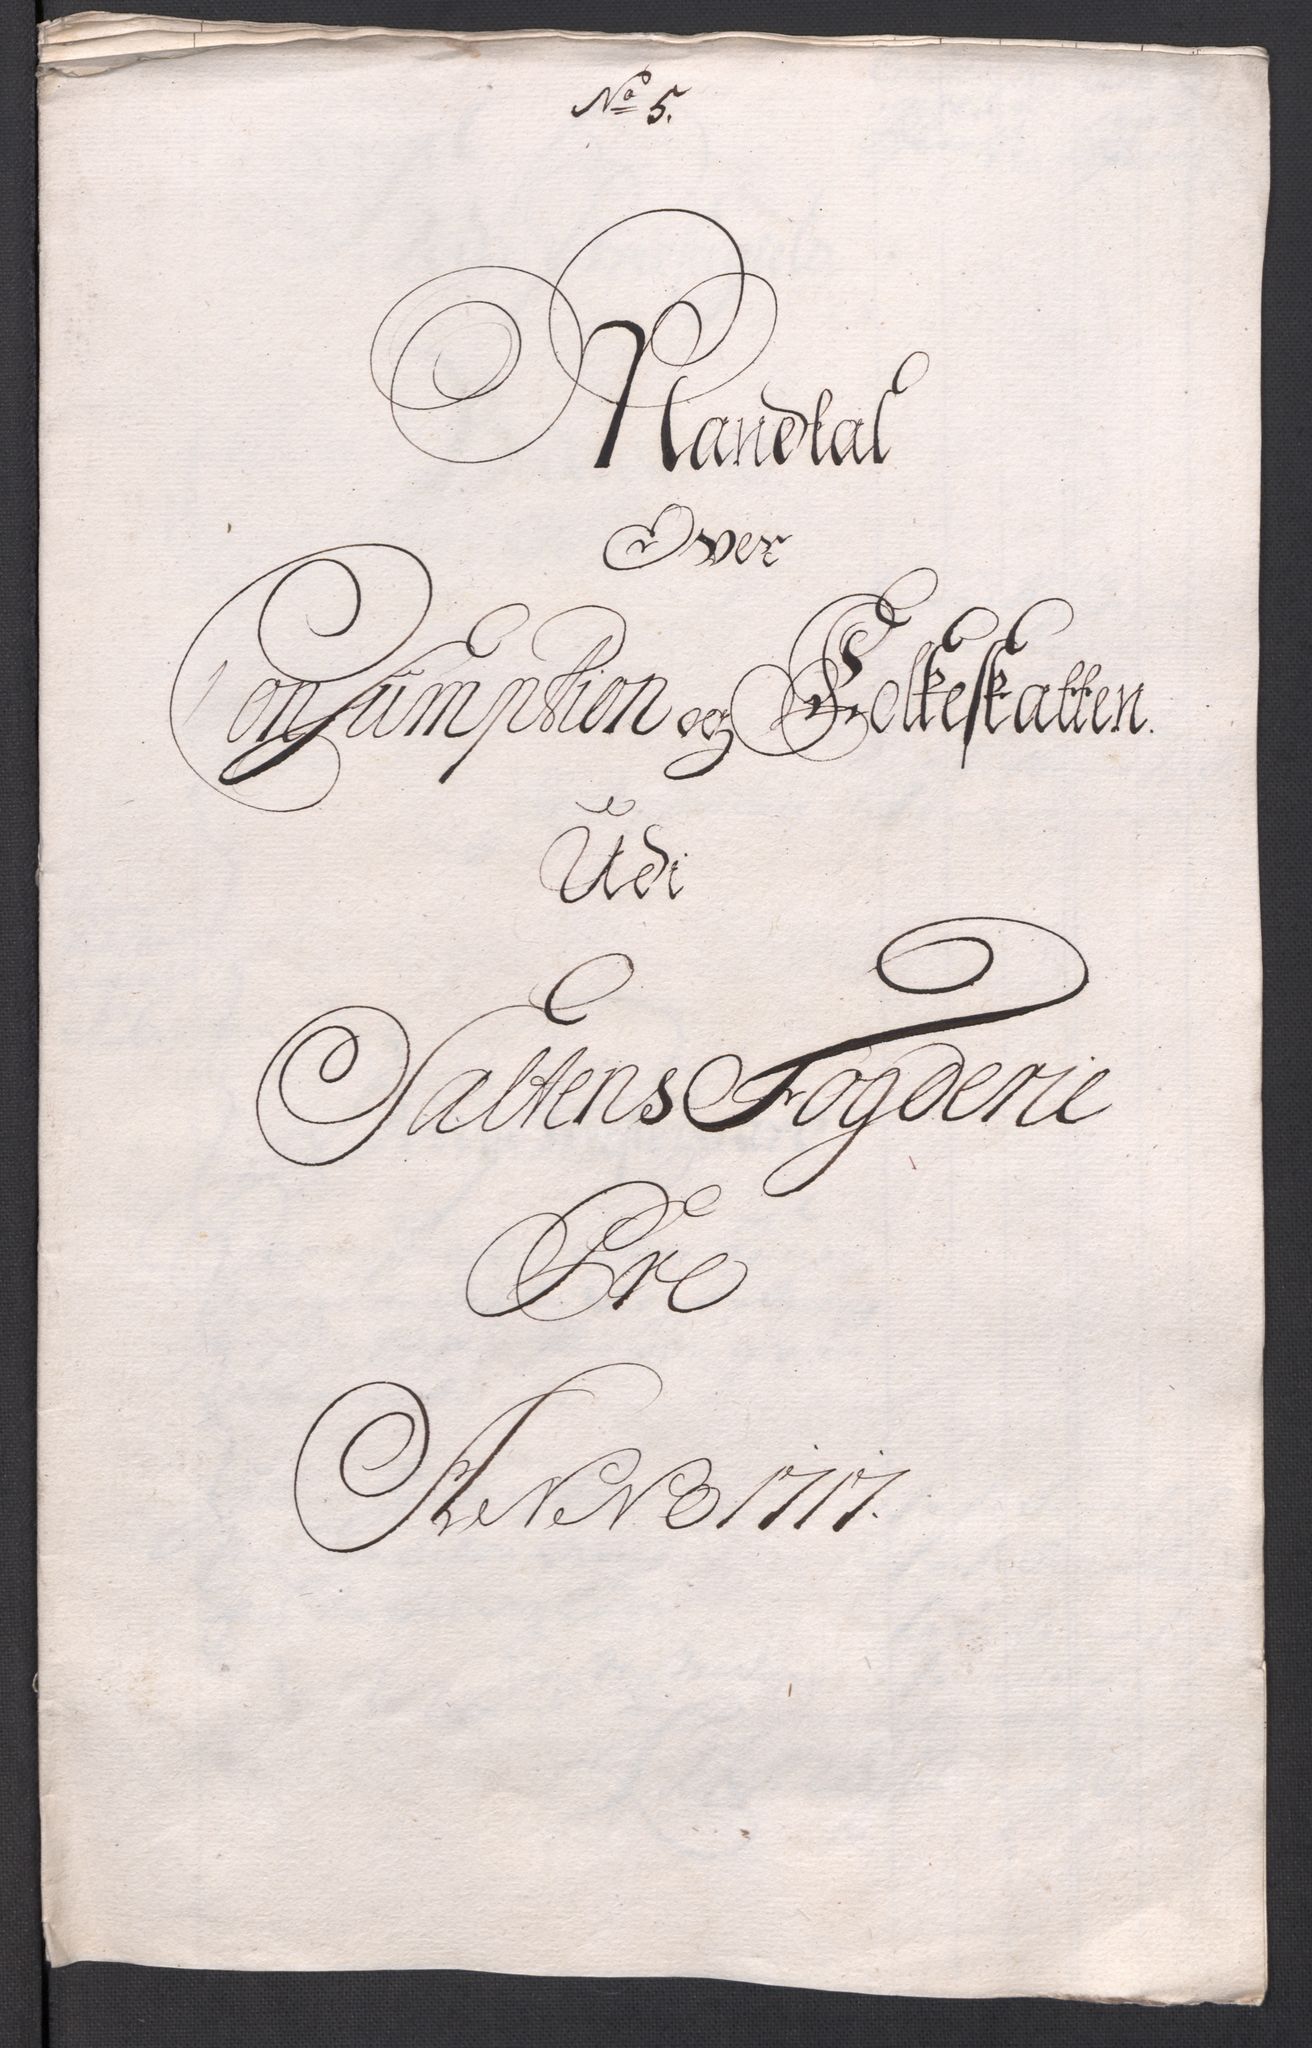 No 5.
Mandtal
Over
Consumption og Folkeskatten.
Udi
Saltens Fogderie
Pro
Anno 1717.